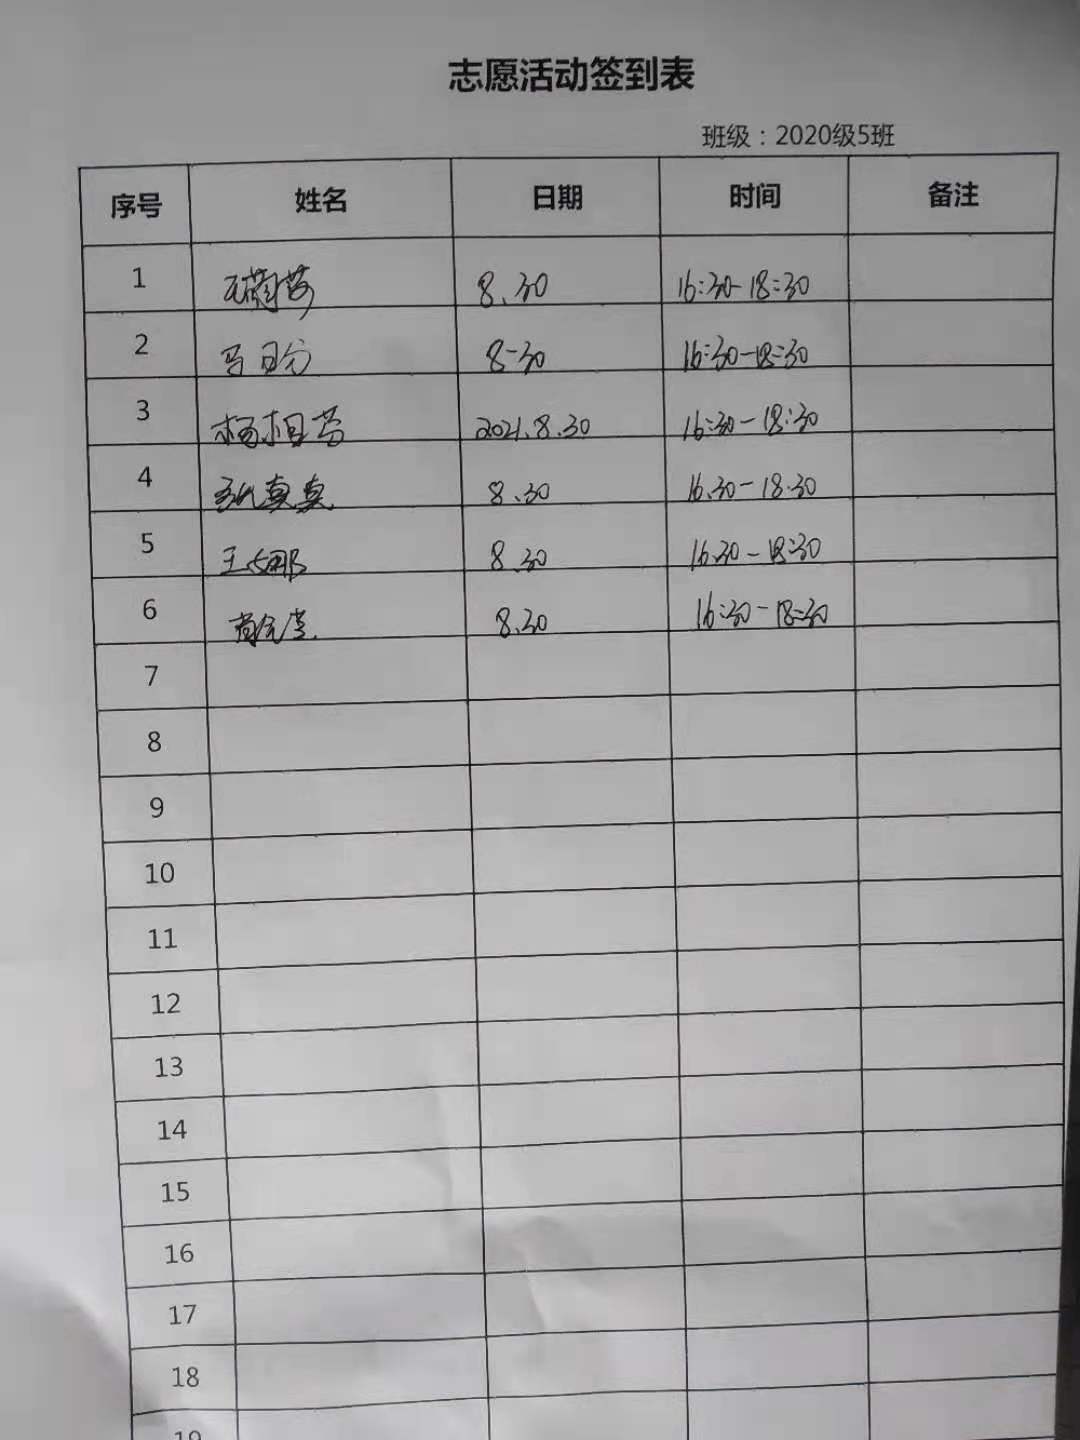 志愿活动签到表
班级：2020级5班
序号 姓名 日期 时间 备注
1 8.30 16:30-18:30
2 马日分 8-30 16:30-18:30
3 杨相芸 2021.8.30 16:30-18:30
4 真真 8.30 16.30-18.30
5 王娜 8.30 16.30-18:30
6 8.30 16:30-18:30
7
8
9
10
11
12
13
14
15
16
17
18
19